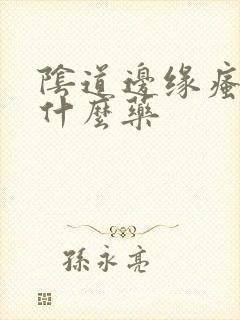 陰道邊缘瘙
什麼藥
孫永亮